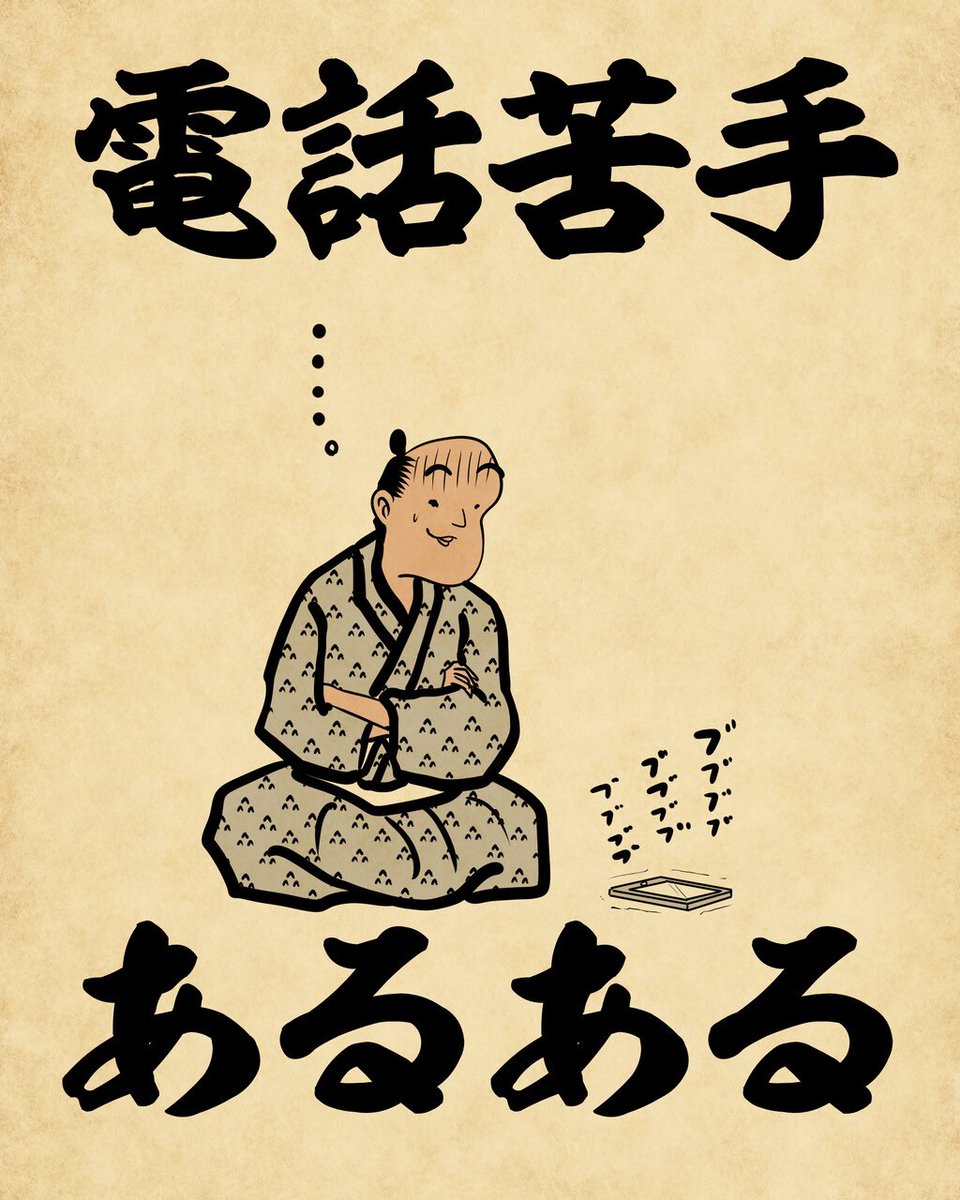 電話苦手
・・・・・
ブブブブ
ブブブブ
ブブブブ
あるある